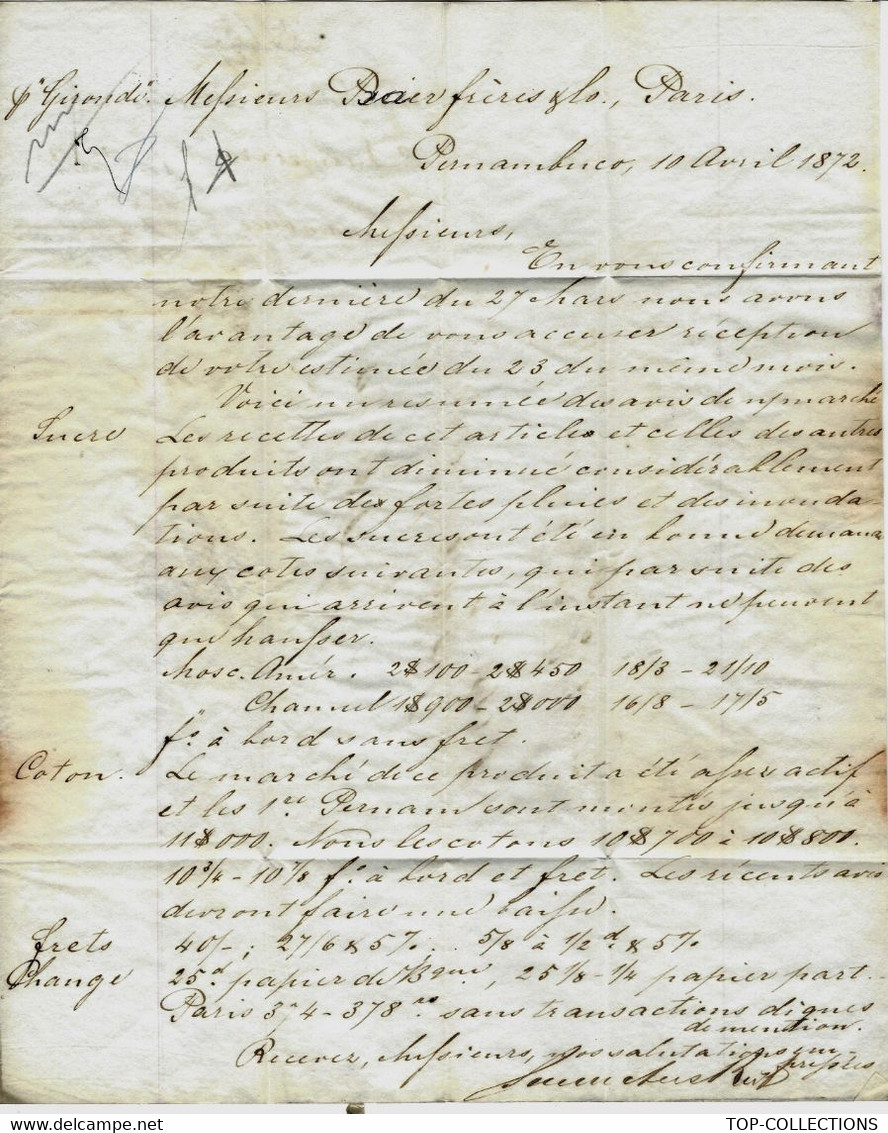 pr "Gironde". Messieurs Baier frères & Co., Paris.
Pernambuco, 10 Avril 1872.
Messieurs,
En vous confirmant
notre dernière du 27 Mars nous avons
l'avantage de vous accuser réception
de votre estimée du 23 du même mois.
Voici un resumée des avis de n/ marché
Sucre Les recettes de cet article et celles des autres
produits ont diminué considérablement
par suite des fortes pluies et des inonda
tions. Les sucres ont été en bonne demande
aux cotes suivantes, qui par suite des
avis qui arrivent à l'instant ne peuvent
que hausser.
Mosc. Amér. 2$100 - 2$450 18/3 - 21/10
" Channel 1$900 - 2$000 16/8 - 17/5
fo. à bord sans fret.
Coton. Le marché de ce produit a été assez actif
et les 1res Pernam sont montés jusqu'à
11$000. Nous les cotons 10$700 à 10$800.
10 3/4 - 10 7/8 fo. à bord et fret. Les récents avis
devront faire une baisse.
frets 40/-; 27/6 & 5%; .. 5/8 à 1/2 d & 5%
Change 25 d papier de Bque, 25 1/8 - 1/4 papier part.
Paris 374 - 378 rs sans transactions dignes
de mention.
Recevez, Messieurs, nos salutations em-
pressées
TOP-COLLECTIONS